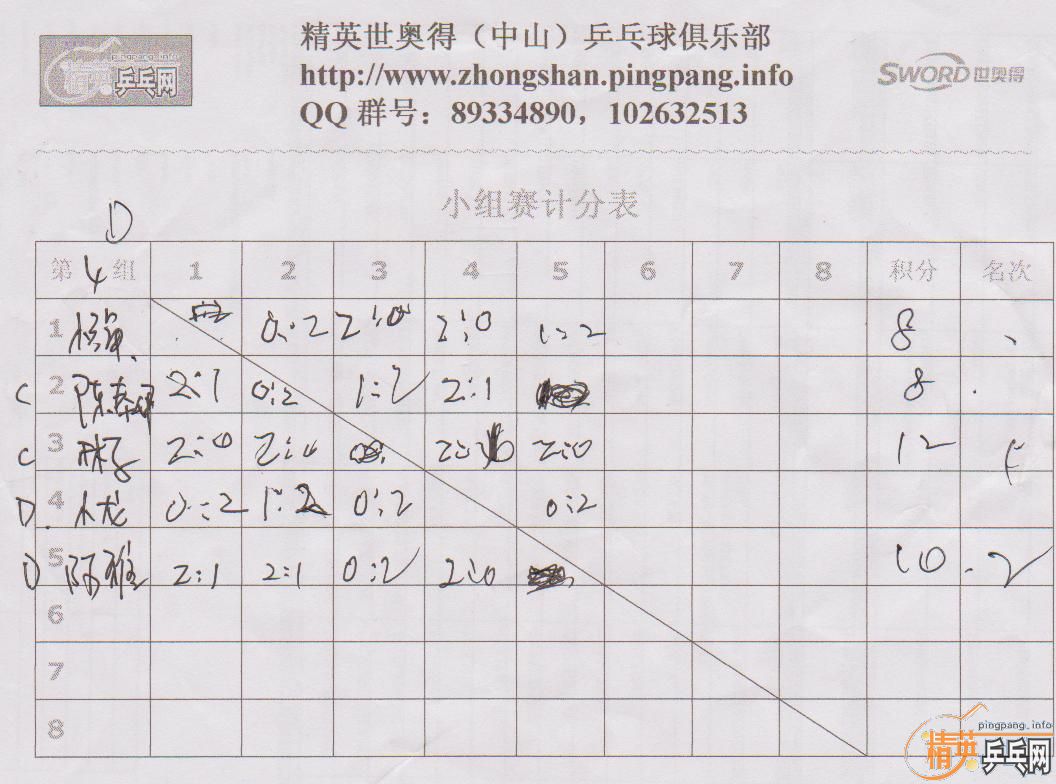 pingpang.info
精英乒乓网
精英世奥得（中山）乒乓球俱乐部
http://www.zhongshan.pingpang.info
QQ 群号：89334890，102632513
SWORD 世奥得
小组赛计分表
D
第 4 组 1 2 3 4 5 6 7 8 积分 名次
1 0:2 2:0 2:0 1:2 8
C 2 2:1 0:2 1:2 2:1 8
C 3 2:0 2:0 2:0 2:0 12
D. 4 木龙 0:2 1:2 0:2 0:2
D 5 阿雅 2:1 2:1 0:2 2:0 10 2
6
7
8
pingpang.info
精英乒乓网